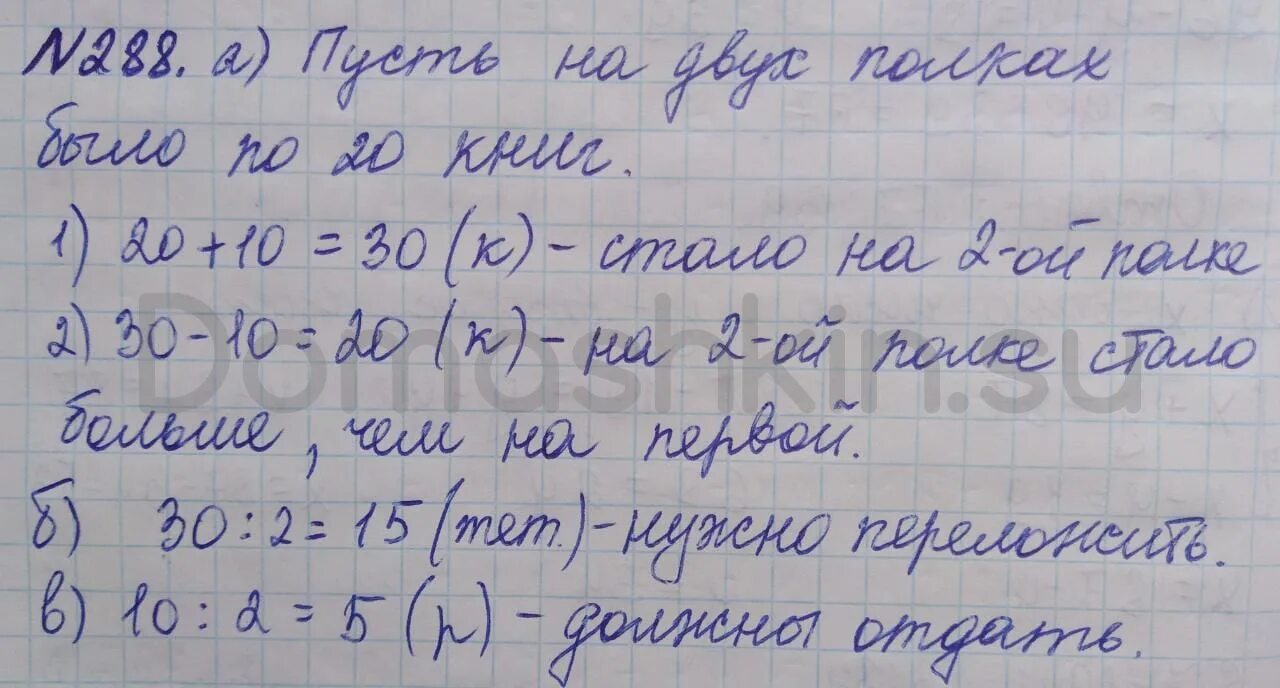 №288. а) Пусть на двух полках
было по 20 книг.
1) 20+10=30(к)-стало на 2-ой полке
2) 30-10=20(к)-на 2-ой полке стало
больше, чем на первой.
б) 30:2=15(тет.)-нужно переложить.
в) 10:2=5(р)-должны отдать.
Domashkin.su